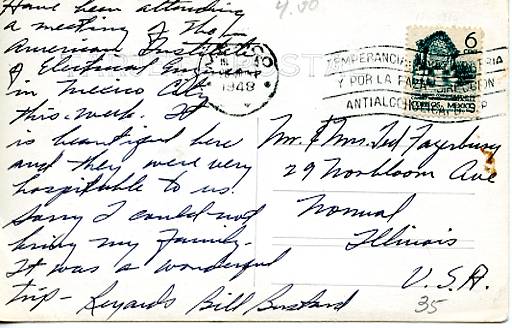 4.00
Have been attending
a meeting of the
American Institute
of Electrical Eng
in Mexico City
this week. It
is beautiful here
and they were very
hospitable to us.
Sorry I could not
bring my family.
It was a wonderful
trip - Regards Bill
MEXICO
1948
6
Y POR LA
DIRECCION
CORREOS MEXICO
Mr. & Mrs. Ted
29 Ave
Normal
Illinois
U.S.A.
35